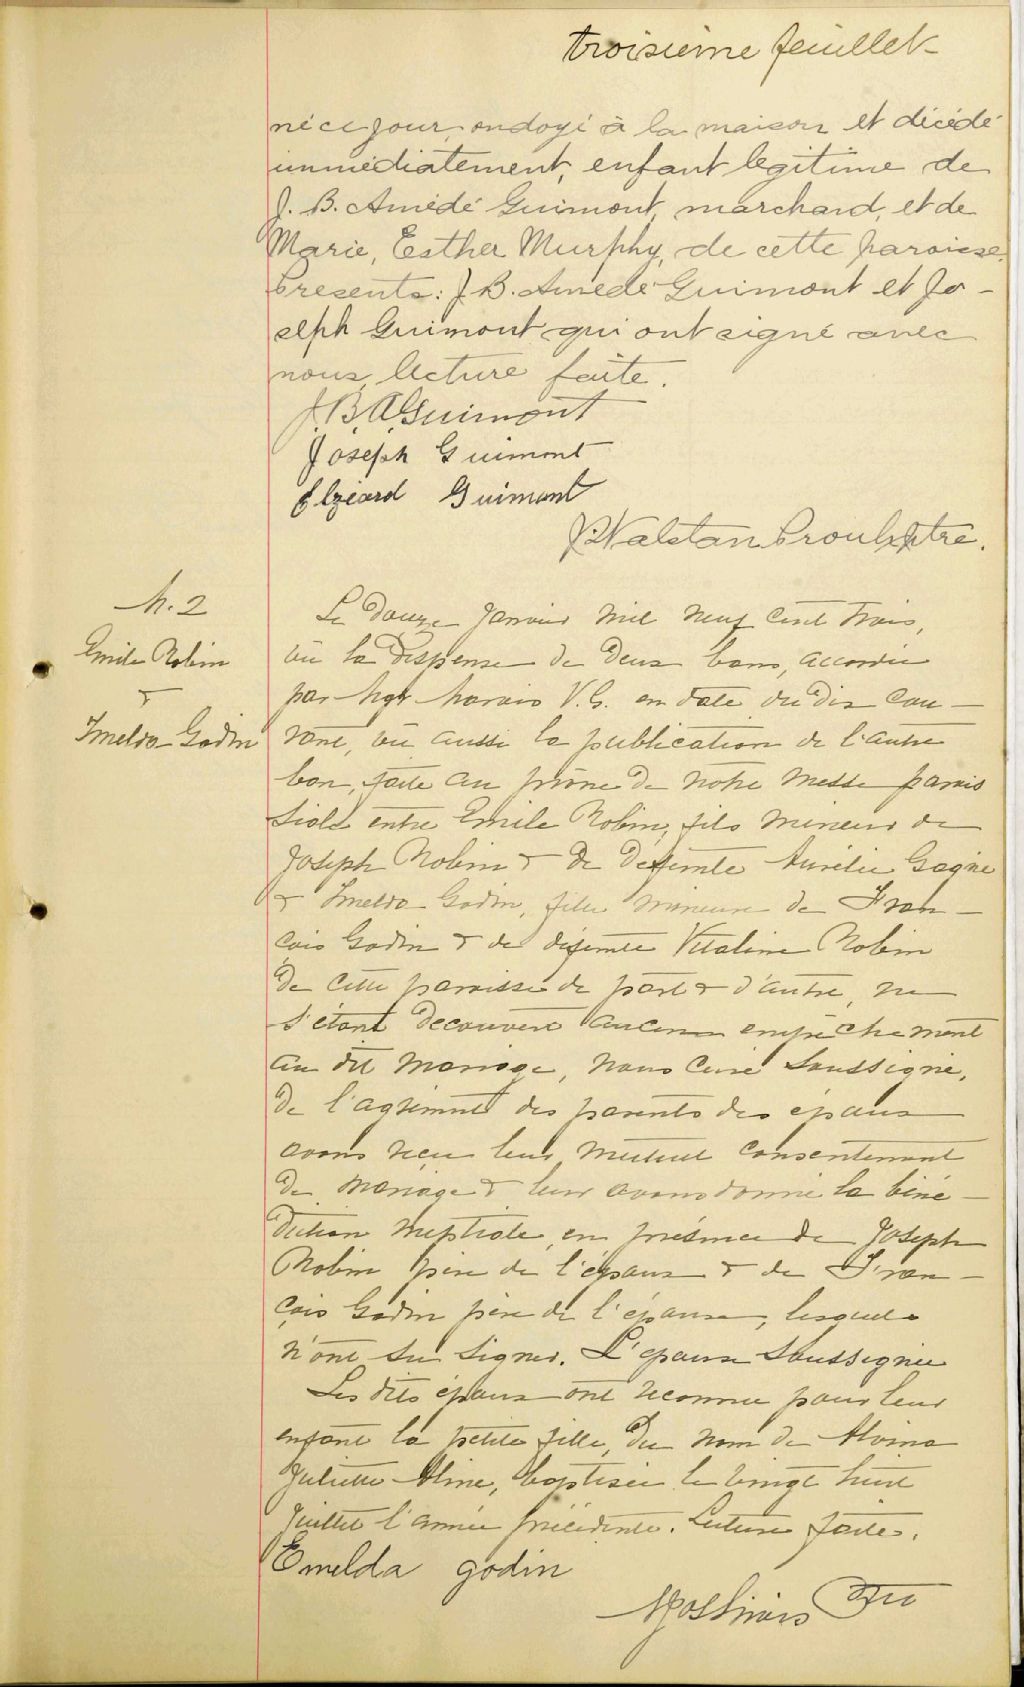 troisième feuillet
né ce jour, ondoyé à la maison et décédé
immédiatement, enfant légitime de
J. B. Amédé Guimont, marchand, et de
Marie, Esther Murphy, de cette paroisse.
Présents: J. B. Amédé Guimont et Jo-
seph Guimont qui ont signé avec
nous, lecture faite.
J.B.A. Guimont
Joseph Guimont
Elzéard Guimont
Ptre.
M. 2
Emile Robin
&
Imelda Godin
Le douze Janvier mil neuf cent trois,
vu la dispense de deux bans, accordée
par Mgr Marois V.G. en date du dix cou-
rant, vu aussi la publication de l'autre
ban, faite au prône de notre messe parois
siale entre Emile Robin, fils mineur de
Joseph Robin & de défunte Aurélie Gagné
& Imelda Godin, fille mineure de Fran-
çois Godin & de défunte Vitaline Robin
de cette paroisse de part & d'autre, ne
s'étant découvert aucun empêchement
au dit mariage, nous Curé soussigné,
de l'agrément des parents des époux
avons reçu leur mutuel consentement
de mariage & leur avons donné la béné-
diction nuptiale, en présence de Joseph
Robin père de l'époux & de Fran-
çois Godin père de l'épouse, lesquels
n'ont su signer. L'épouse soussignée
Les dits époux ont reconnu pour leur
enfant la petite fille, du nom de Alvina
Juliette Aline, baptisée le vingt huit
Juillet l'année précédente. Lecture faite.
Emelda godin
Ptre